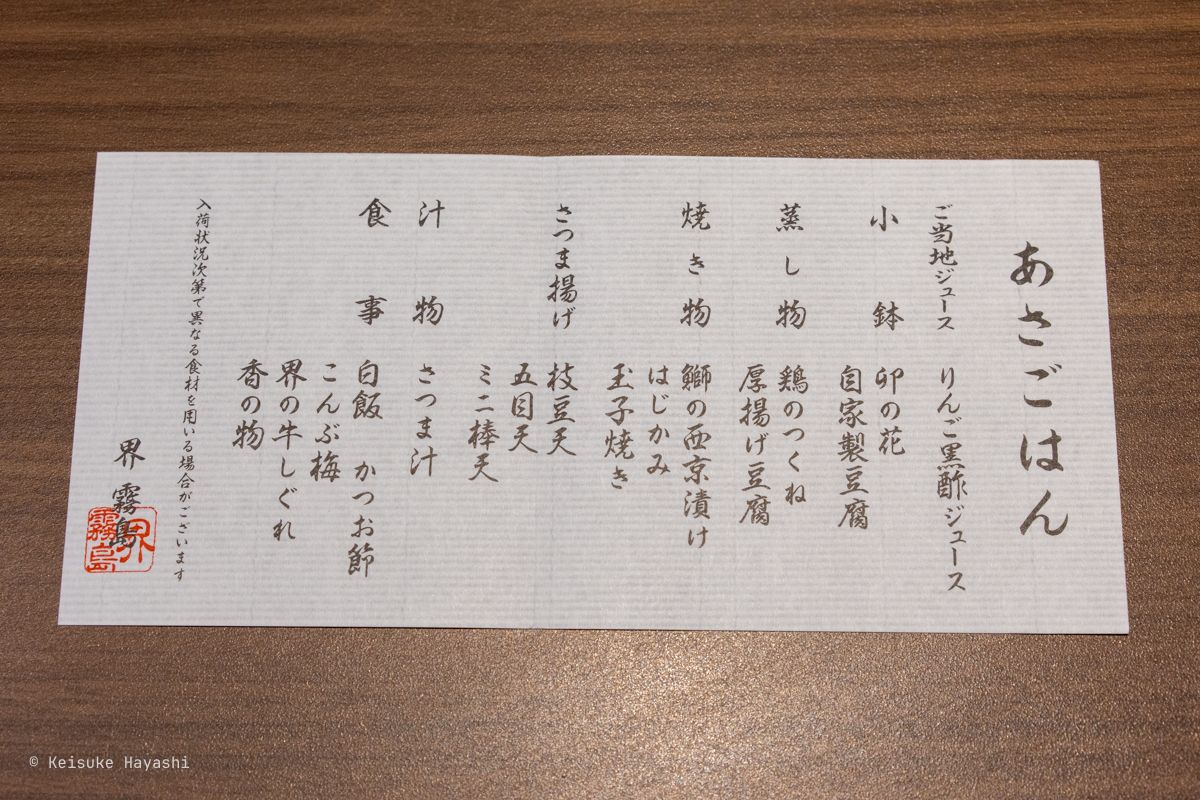 あさごはん
ご当地ジュース りんご黒酢ジュース
小鉢 卯の花
自家製豆腐
蒸し物 鶏のつくね
厚揚げ豆腐
焼き物 鰤の西京漬け
はじかみ
玉子焼き
さつま揚げ 枝豆天
五目天
ミニ棒天
汁物 さつま汁
食事 白飯 かつお節
こんぶ梅
界の牛しぐれ
香の物
入荷状況次第で異なる食材を用いる場合がございます
界 霧島
界霧島
© Keisuke Hayashi